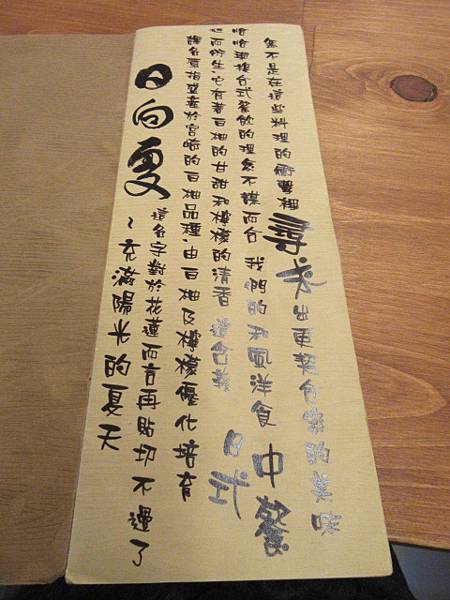 日向夏
~充滿陽光的夏天
這名字對於花蓮而言再貼切不過了
夏指盛產於宮崎的白柚品種,由白柚及檸檬優化培育
而衍生,它有著白柚的甘甜和檸檬的清香 適合義 日式
恰恰跟複合式餐飲的理念不謀而合 我們的和風洋食 中餐
無不是在這些料理的衝擊裡 尋求出更契合的美味